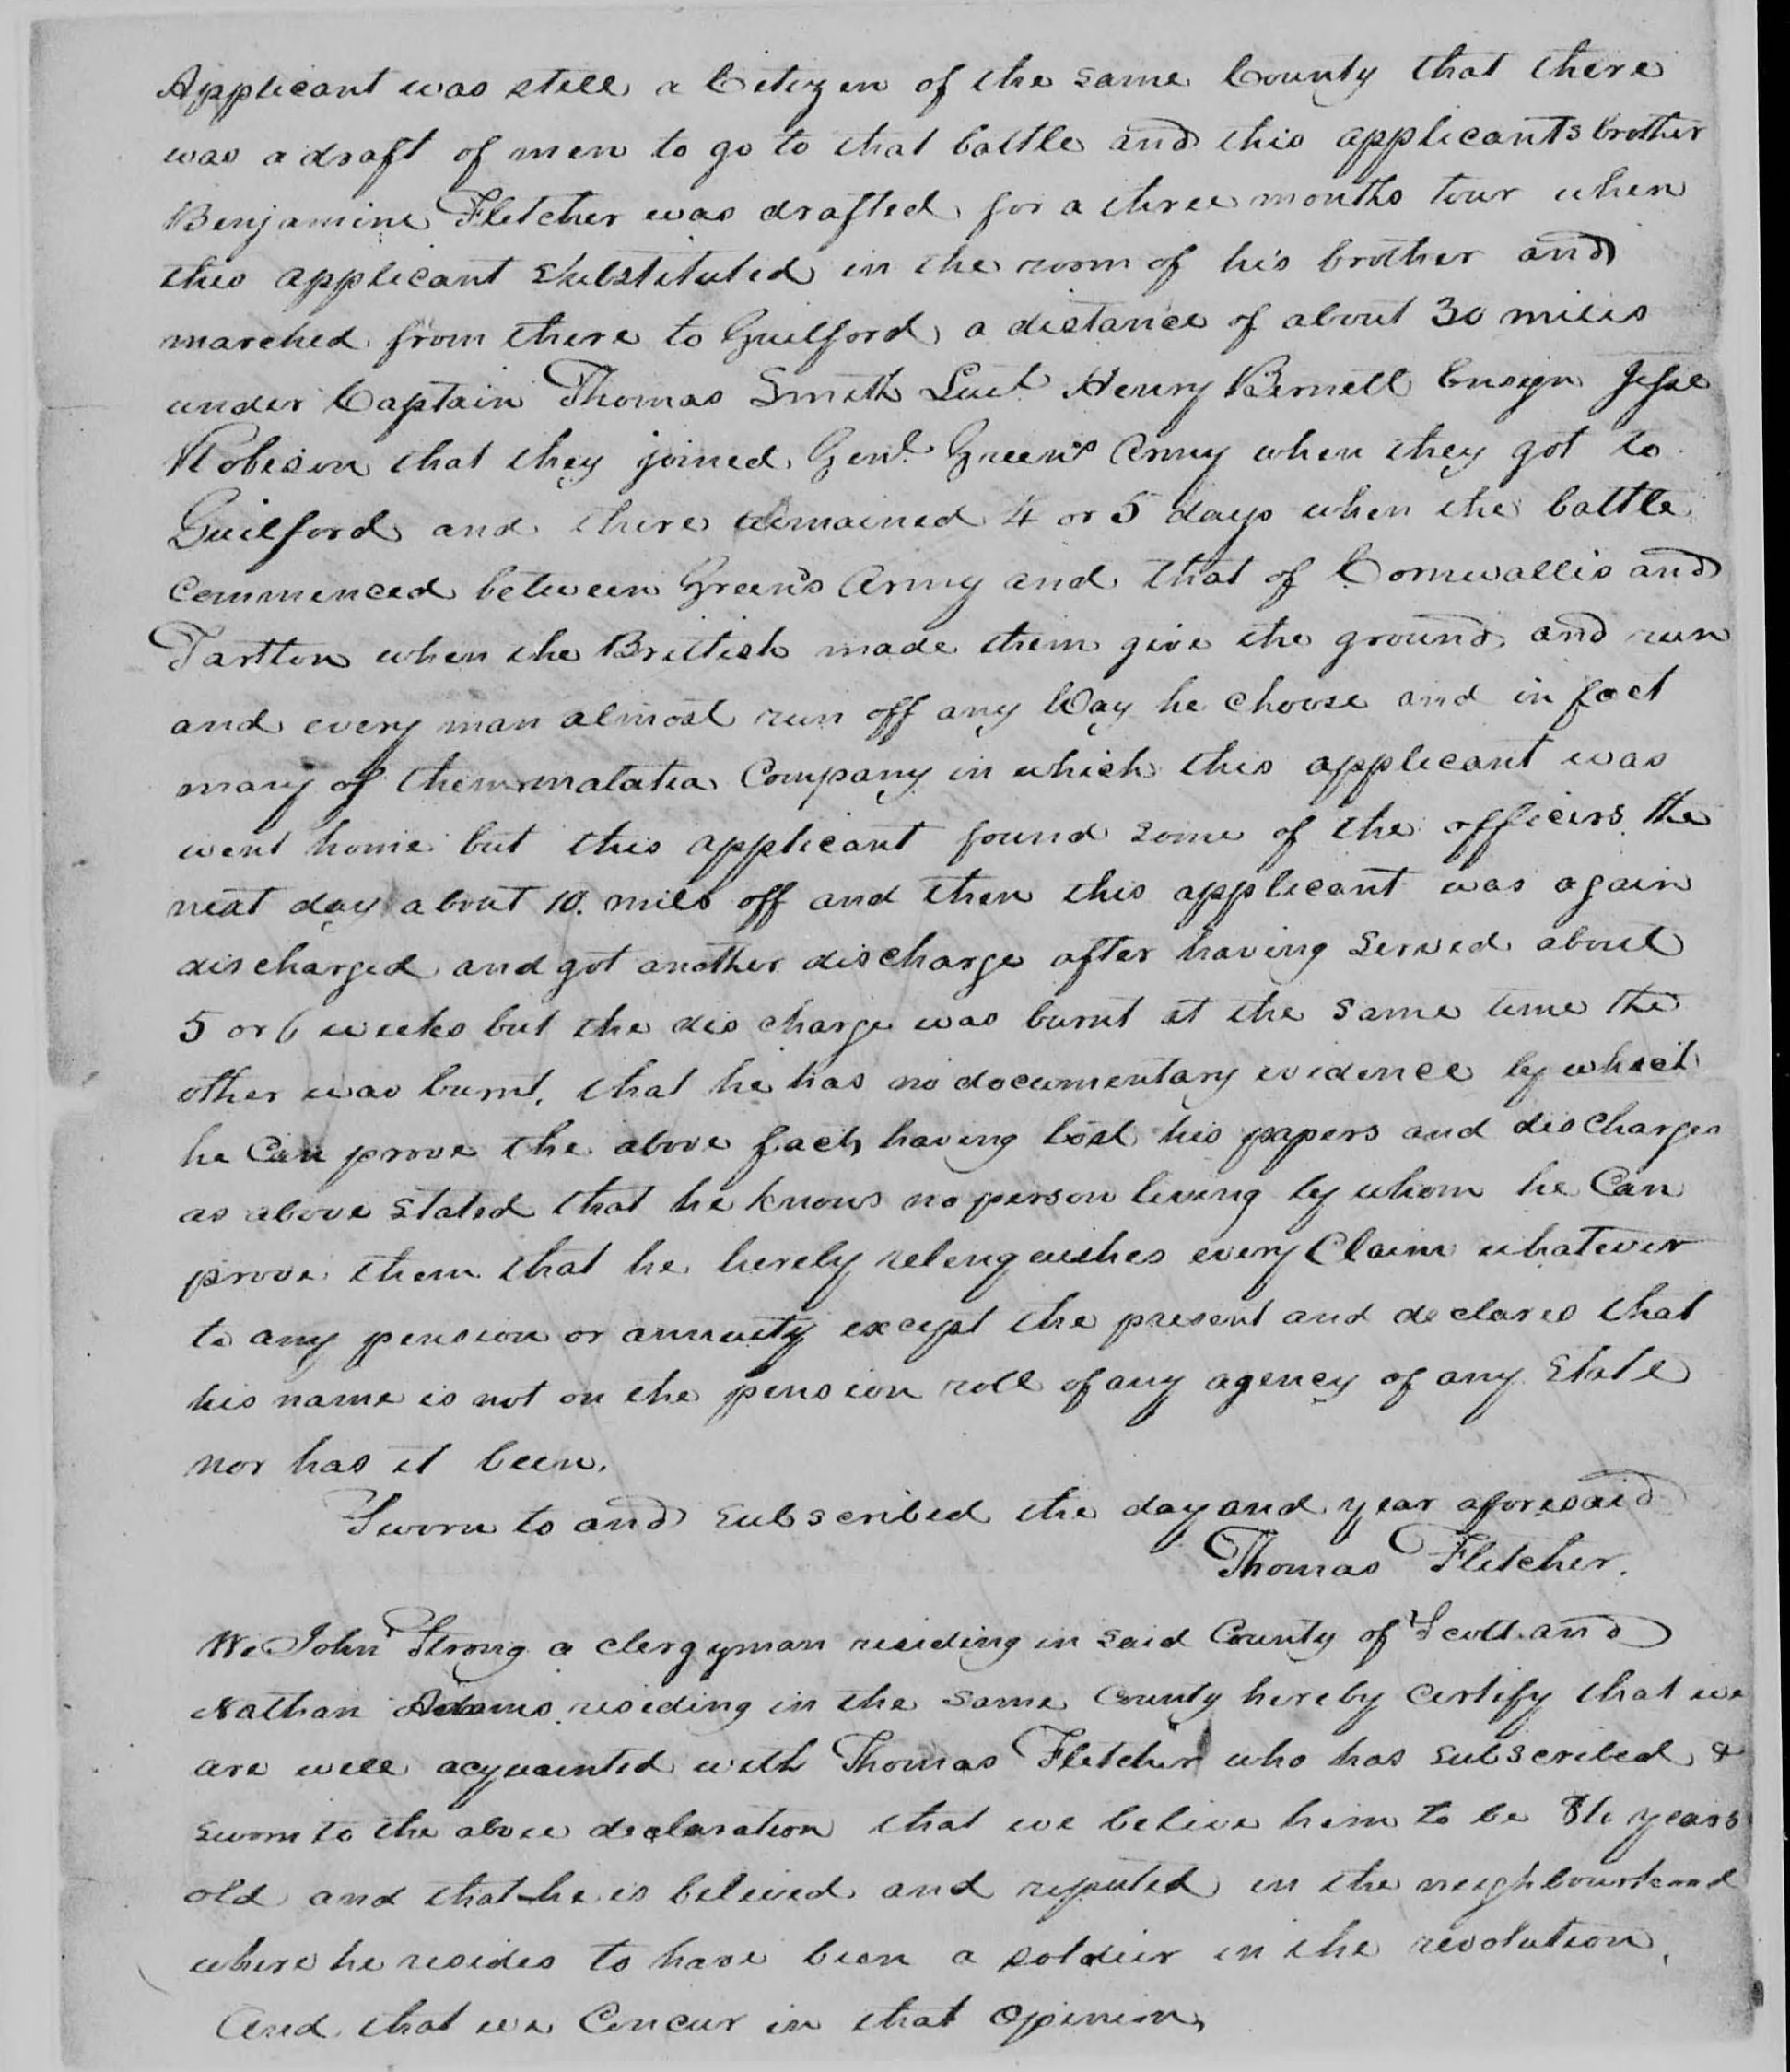 Applicant was still a Citizen of the same County that there
was a draft of men to go to that battle and this applicants brother
Benjamine Fletcher was drafted for a three months tour when
this applicant substituted in the room of his brother and
marched from there to Guilford a distance of about 30 miles
under Captain Thomas Smith Lieut Henry Bernell Ensign Jesse
Robison that they joined Genl. Green's Army when they got to
Guilford and there remained 4 or 5 days when the battle
commenced between Green's Army and that of Cornwallis and
Tartton when the Brittish made them give the ground and run
and every man almost run off any Way he choose and in fact
many of them malatia Company in which this applicant was
went home but this applicant found some of the officers the
next day about 10. miles off and then this applicant was again
discharged and got another discharge after having served about
5 or 6 weeks but the discharge was burnt at the same time the
other was burnt, that he has no documentary evidence by which
he Can prove the above facts having lost his papers and discharges
as above stated that he knows no person living by whom he Can
prove them that he hereby relenquishes every Claim whatever
to any pension or annuity except the present and declares that
his name is not on the pension roll of any agency of any State
nor has it been.
Sworn to and subscribed the day and year aforesaid
Thomas Fletcher.
We John Strong a clergyman residing in said County of Scott and
Nathan Adams residing in the same County hereby Certify that we
are well acquainted with Thomas Fletcher who has subscribed &
sworn to the above declaration that we believe him to be years
old and that he is beleived and reputed in the neighbourhood
where he resides to have been a soldier in the revolution,
And that we Concur in that opinion,